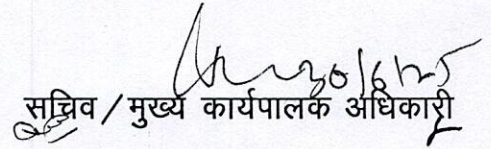 30/6/25
सचिव/मुख्य कार्यपालक अधिकारी